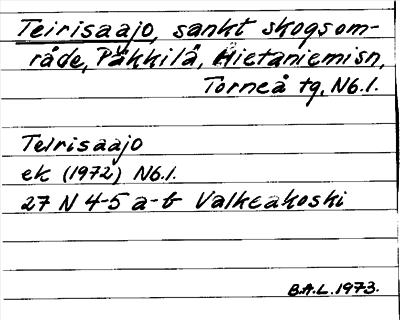 Teirisaajo, sankt skogsom-
råde, Päkkilä, Hietaniemisn,
Torneå tg, N6.1.
Teirisaajo
ek (1972) N6.1.
27 N 4-5 a-b Valkeakoski
B.A.L. 1973.